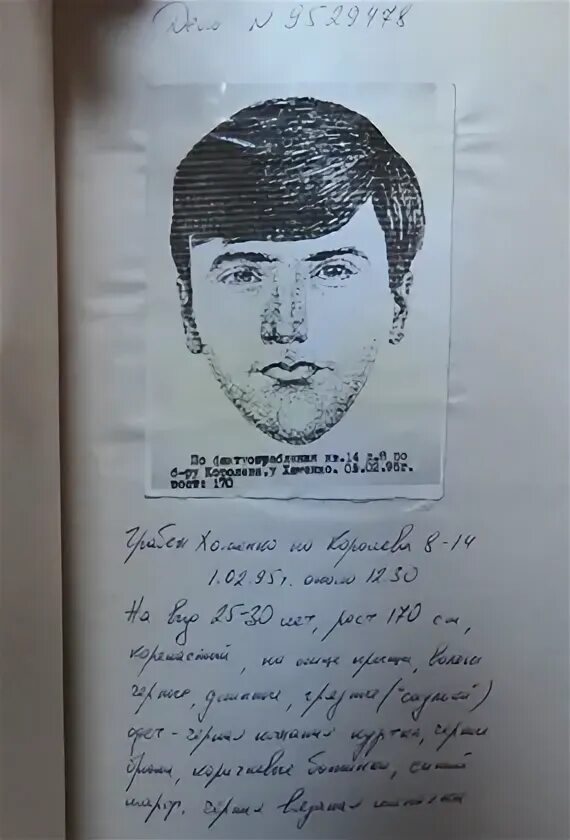 Дело N 9529478
По факту ограбления кв.14 д.8 по
б-ру Королева, у Хоменко. 01.02.95г.
рост: 170
Грабеж Хоменко по Королева 8-14
1.02.95г. около 12.30
На вид 25-30 лет, рост 170 см,
коренастый, на лице прыщи, волосы
черные, длинные, грязные ("сальные")
одет - черная кожаная куртка, черные
брюки, коричневые ботинки, синий
шарф, черная вязаная